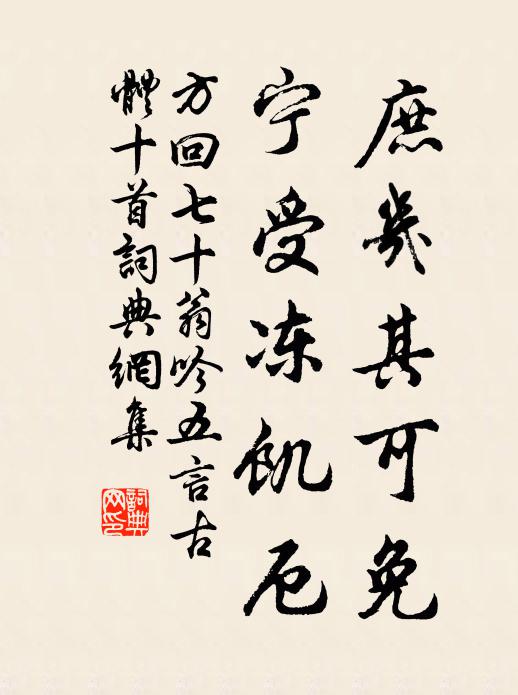 庶幾其可免
宁受冻飢厄
方回七十翁吟五言古
體十首詞典網集
詞典网印